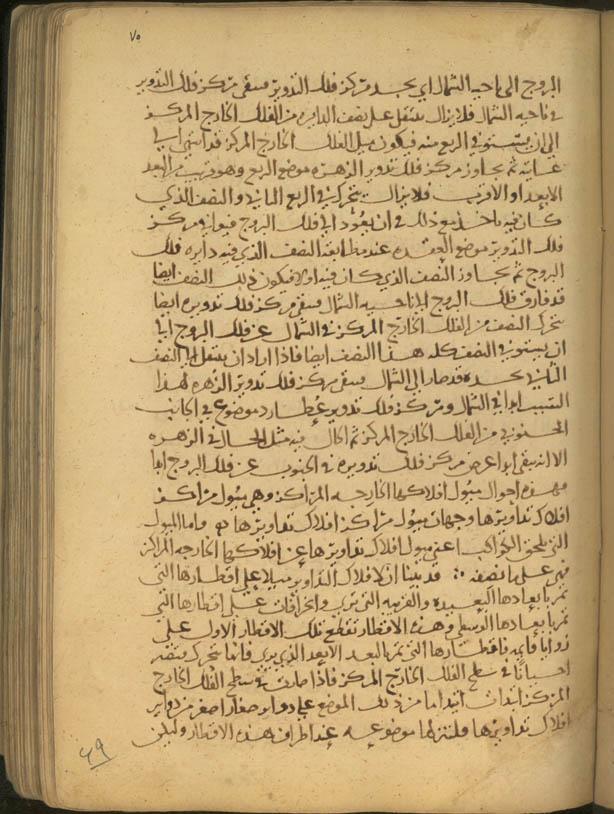 ٧٥
البروج الى ناحيه الشمال اى يجد مركز فلك التدوير فيبقى مركز فلك التدوير
فى ناحيه الشمال فلا يزال ينتقل على نصف الدايره من الفلك الخارج المركز
الى ان يستوفى الربع منه فيكون ميل الفلك الخارج المركز قد انتهى الى
غايته ثم يجاوز مركز فلك تدوير الزهره موضع الربع وهو قريب البعد
الابعد او الاقرب فلا يزال يتحرك فى الربع الثانى والنصف الذى
كان فيه ياخذ مع ذلك فى ان يعود الى فلك البروج فيوافى مركز
فلك التدوير موضع العقده عند مطابقة النصف الذى فيه دايره فلك
البروج ثم يجاوز النصف الذى كان فيه اولا فيكون ذلك النصف ايضا
قد فارق فلك البروج الى ناحيه الشمال فيبقى مركز فلك تدويره ايضا
يتحرك النصف من الفلك الخارج المركز فى الشمال عن فلك البروج الى
ان يستوفى النصف كله هذا النصف ايضا فاذا اراد ان ينتقل الى النصف
الثانى يجده قد صار الى الشمال فيبقى مركز فلك تدوير الزهره لهذا
السبب ابدا فى الشمال ومركز فلك تدوير عطارد موضوع فى الجانب
الجنوبى من الفلك الخارج المركز ثم الحال فيه مثل الحال فى الزهره
الا انه يبقى ابدا مركز فلك تدويره فى الجنوب عن فلك البروج ابدا
فهذه احوال ميول افلاكها الخارجه المراكز وهى ميول مراكز
افلاك تداويرها وجهات ميول مراكز افلاك تداويرها واما الميول
التى تلحق الكواكب اعنى ميول افلاك تداويرها عن افلاكها الخارجه المراكز
فهى على ما نصفه قد بينا ان لافلاك التداوير ميلا على اقطارها التى
تمر بابعادها البعيده والقريبه التى ترى وانحرافات على اقطارها التى
تمر بابعادها الوسطى وهذه الاقطار تقطع تلك الاقطار الاول على
زوايا قايمه فاقطارها التى تمر بالبعد الابعد الذى يرى فانها تتحرك
احيانا فى سطح الفلك الخارج المركز فاذا صارت فى سطح الفلك الخارج
المركز ابتدات من ذلك الموضع على دواير صغار اصغر من دواير
افلاك تداويرها ولننزلها موضوعه عند اطراف هذه الاقطار وليكن
٤٩